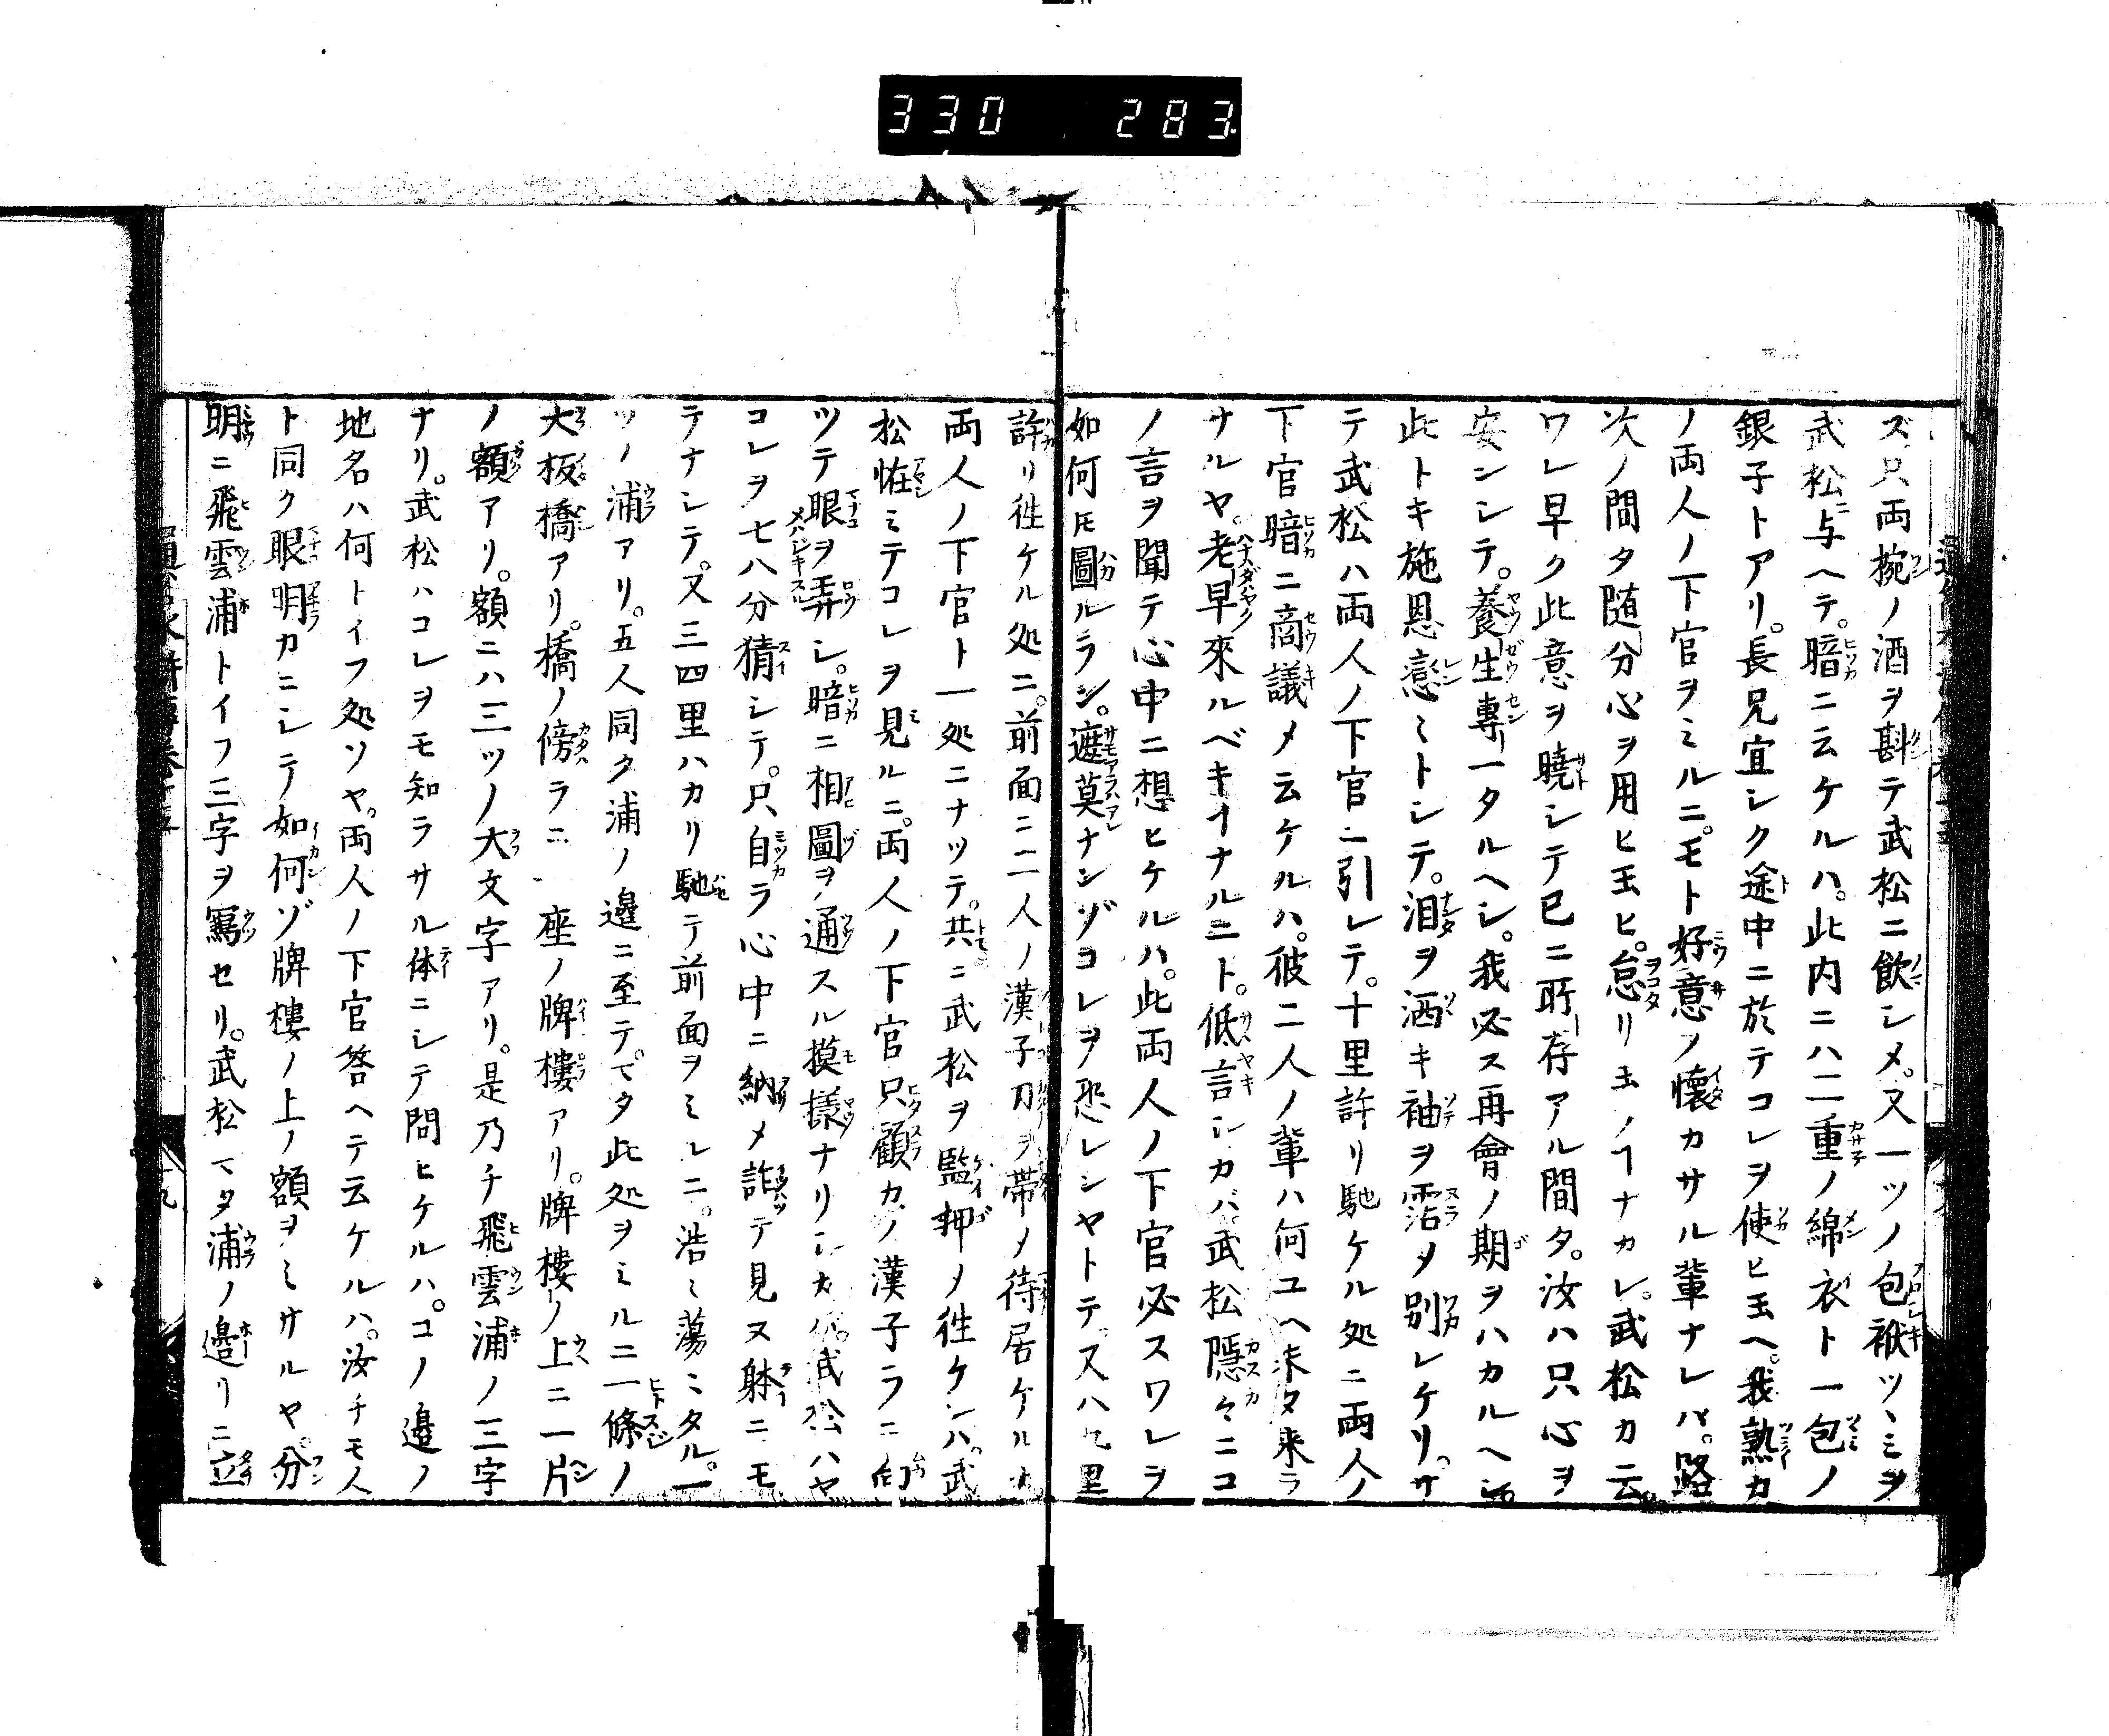 330 283.
ズ只両椀ノ酒ヲ斟テ武松ニ飲シメ。又一ツノ包袱ツヽミヲ
武松ニ与ヘテ。暗ニ云ケルハ。此内ニハ二重ノ綿衣ト一包ノ
銀子トアリ。長兄宜シク途中ニ於テコレヲ使ヒ玉ヘ。我熟カ
ノ両人ノ下官ヲミルニ。モト好意ヲ懐カサル輩ナレバ。路
次ノ間タ随分心ヲ用ヒ玉ヒ。怠リ玉ノ㆒ナカレ。武松カ云。
ワレ早ク此意ヲ曉シテ已ニ所存アル間タ。汝ハ只心ヲ
安ンシテ。養生専一タルヘシ。我必ス再會ノ期ヲハカルヘシ。
此トキ施恩戀ミトシテ。泪ヲ洒キ袖ヲ霑メ別レケリ。サ
テ武松ハ両人ノ下官ニ引レテ。十里許リ馳ケル処ニ両人ノ
下官暗ニ商議メ云ケルハ。彼二人ノ輩ハ何ユヘ未タ来ラ
サルヤ。老早來ルベキ㆒ナルニト。低言シカバ武松隱々ニコ
ノ言ヲ聞テ心中ニ想ヒケルハ。此両人ノ下官必スワレヲ
如何ﾄﾓ圖ルラン。遮莫ナンゾコレヲ恐レンヤトテ又ハ七里
許リ徃ケル処ニ。前面ニ二人ノ漢子刀ヲ帯メ待居ケルカ
両人ノ下官ト一処ニナツテ。共ニ武松ヲ監押メ徃ケンハ。武
松恠ミテコレヲ見ルニ。両人ノ下官只顧カノ漢子ラニ向
ツテ眼ヲ弄シ。暗ニ相圖ヲ通スル摸樣ナリシカバ。武松ハヤ
コレヲ七八分猜シテ。只自ラ心中ニ納メ詐テ見ヌ躰ニモ
テナシテ。又三四里ハカリ馳テ前面ヲミレニ。浩ミ蕩ミタル。一
ツノ浦アリ。五人同ク浦ノ邊ニ至テ。マタ此処ヲミルニ一條ノ
大板橋アリ。橋ノ傍ラニ一座ノ牌樓アリ。牌樓ノ上ニ一片
ノ額アリ。額ニハ三ツノ大文字アリ。是乃チ飛雲浦ノ三字
ナリ。武松ハコレヲモ知ラサル体ニシテ問ヒケルハ。コノ邉ノ
地名ハ何トイフ処ソヤ。両人ノ下官答ヘテ云ケルハ。汝チモ人
ト同ク眼明カニシテ如何ゾ牌樓ノ上ノ額ヲミサルヤ。分
明ニ飛雲浦トイフ三字ヲ寫セリ。武松マタ浦ノ邉リニ立